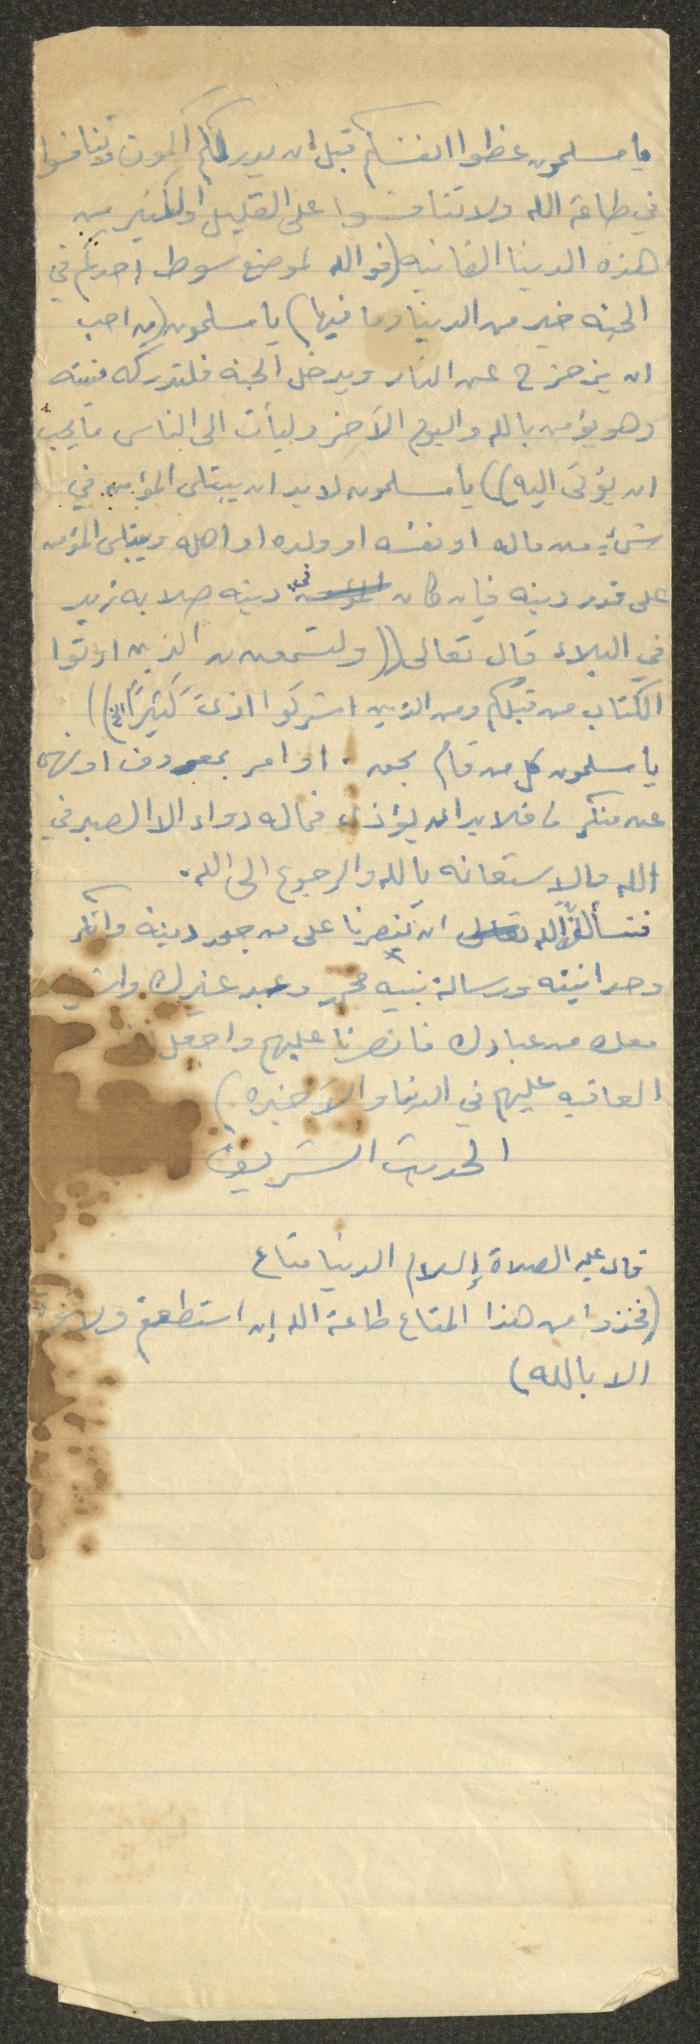 يا مسلمون عظوا انفسكم قبل ان يدرككم الموت وتنافسوا
في طاعة الله ولا تتنافسوا على القليل او الكثير من
هذه الدينا الفانيه (فوالله لموضع سوط احدكم في
الجنه خير من الدينا وما فيها) يا مسلمون (من احب
ان يزحزح عن النار ويدخل الجنه فلتدركه منيته
وهو يؤمن بالله واليوم الآخر وليأت الى الناس ما يحب
ان يؤتى اليه)) يا مسلمون لا بد ان يبتلى المؤمن في
شيء من ماله او نفسه او ولده او اهله ويبتلى المؤمن
على قدر دينه فإن كان في دينه صلابه زيد
في البلاء قال تعالى ((ولتسمعن من الذين اوتوا
الكتاب من قبلكم ومن الذين اشركوا اذىً كثيرًا الخ))
يا مسلمون كل من قام بحق . او امر بمعروف او نهى
عن منكر فلا بد ان يؤذى فماله دواء الا الصبر في
الله والاستعانه بالله والرجوع الى الله.
فنسألك الله ان تنصرنا على من جحد دينه وانكر
وحدانيته ورسالة نبيه محمد وعبد غيرك
معك من عبادك فانصرنا عليهم واجعل
العاقبه عليهم في الدنيا والآخره)
الحديث الشريف
قال عليه الصلاة والسلام الدينا متاع
(فخذوا من هذا المتاع طاعة الله إن استطعتم ولا قوة
الا بالله)